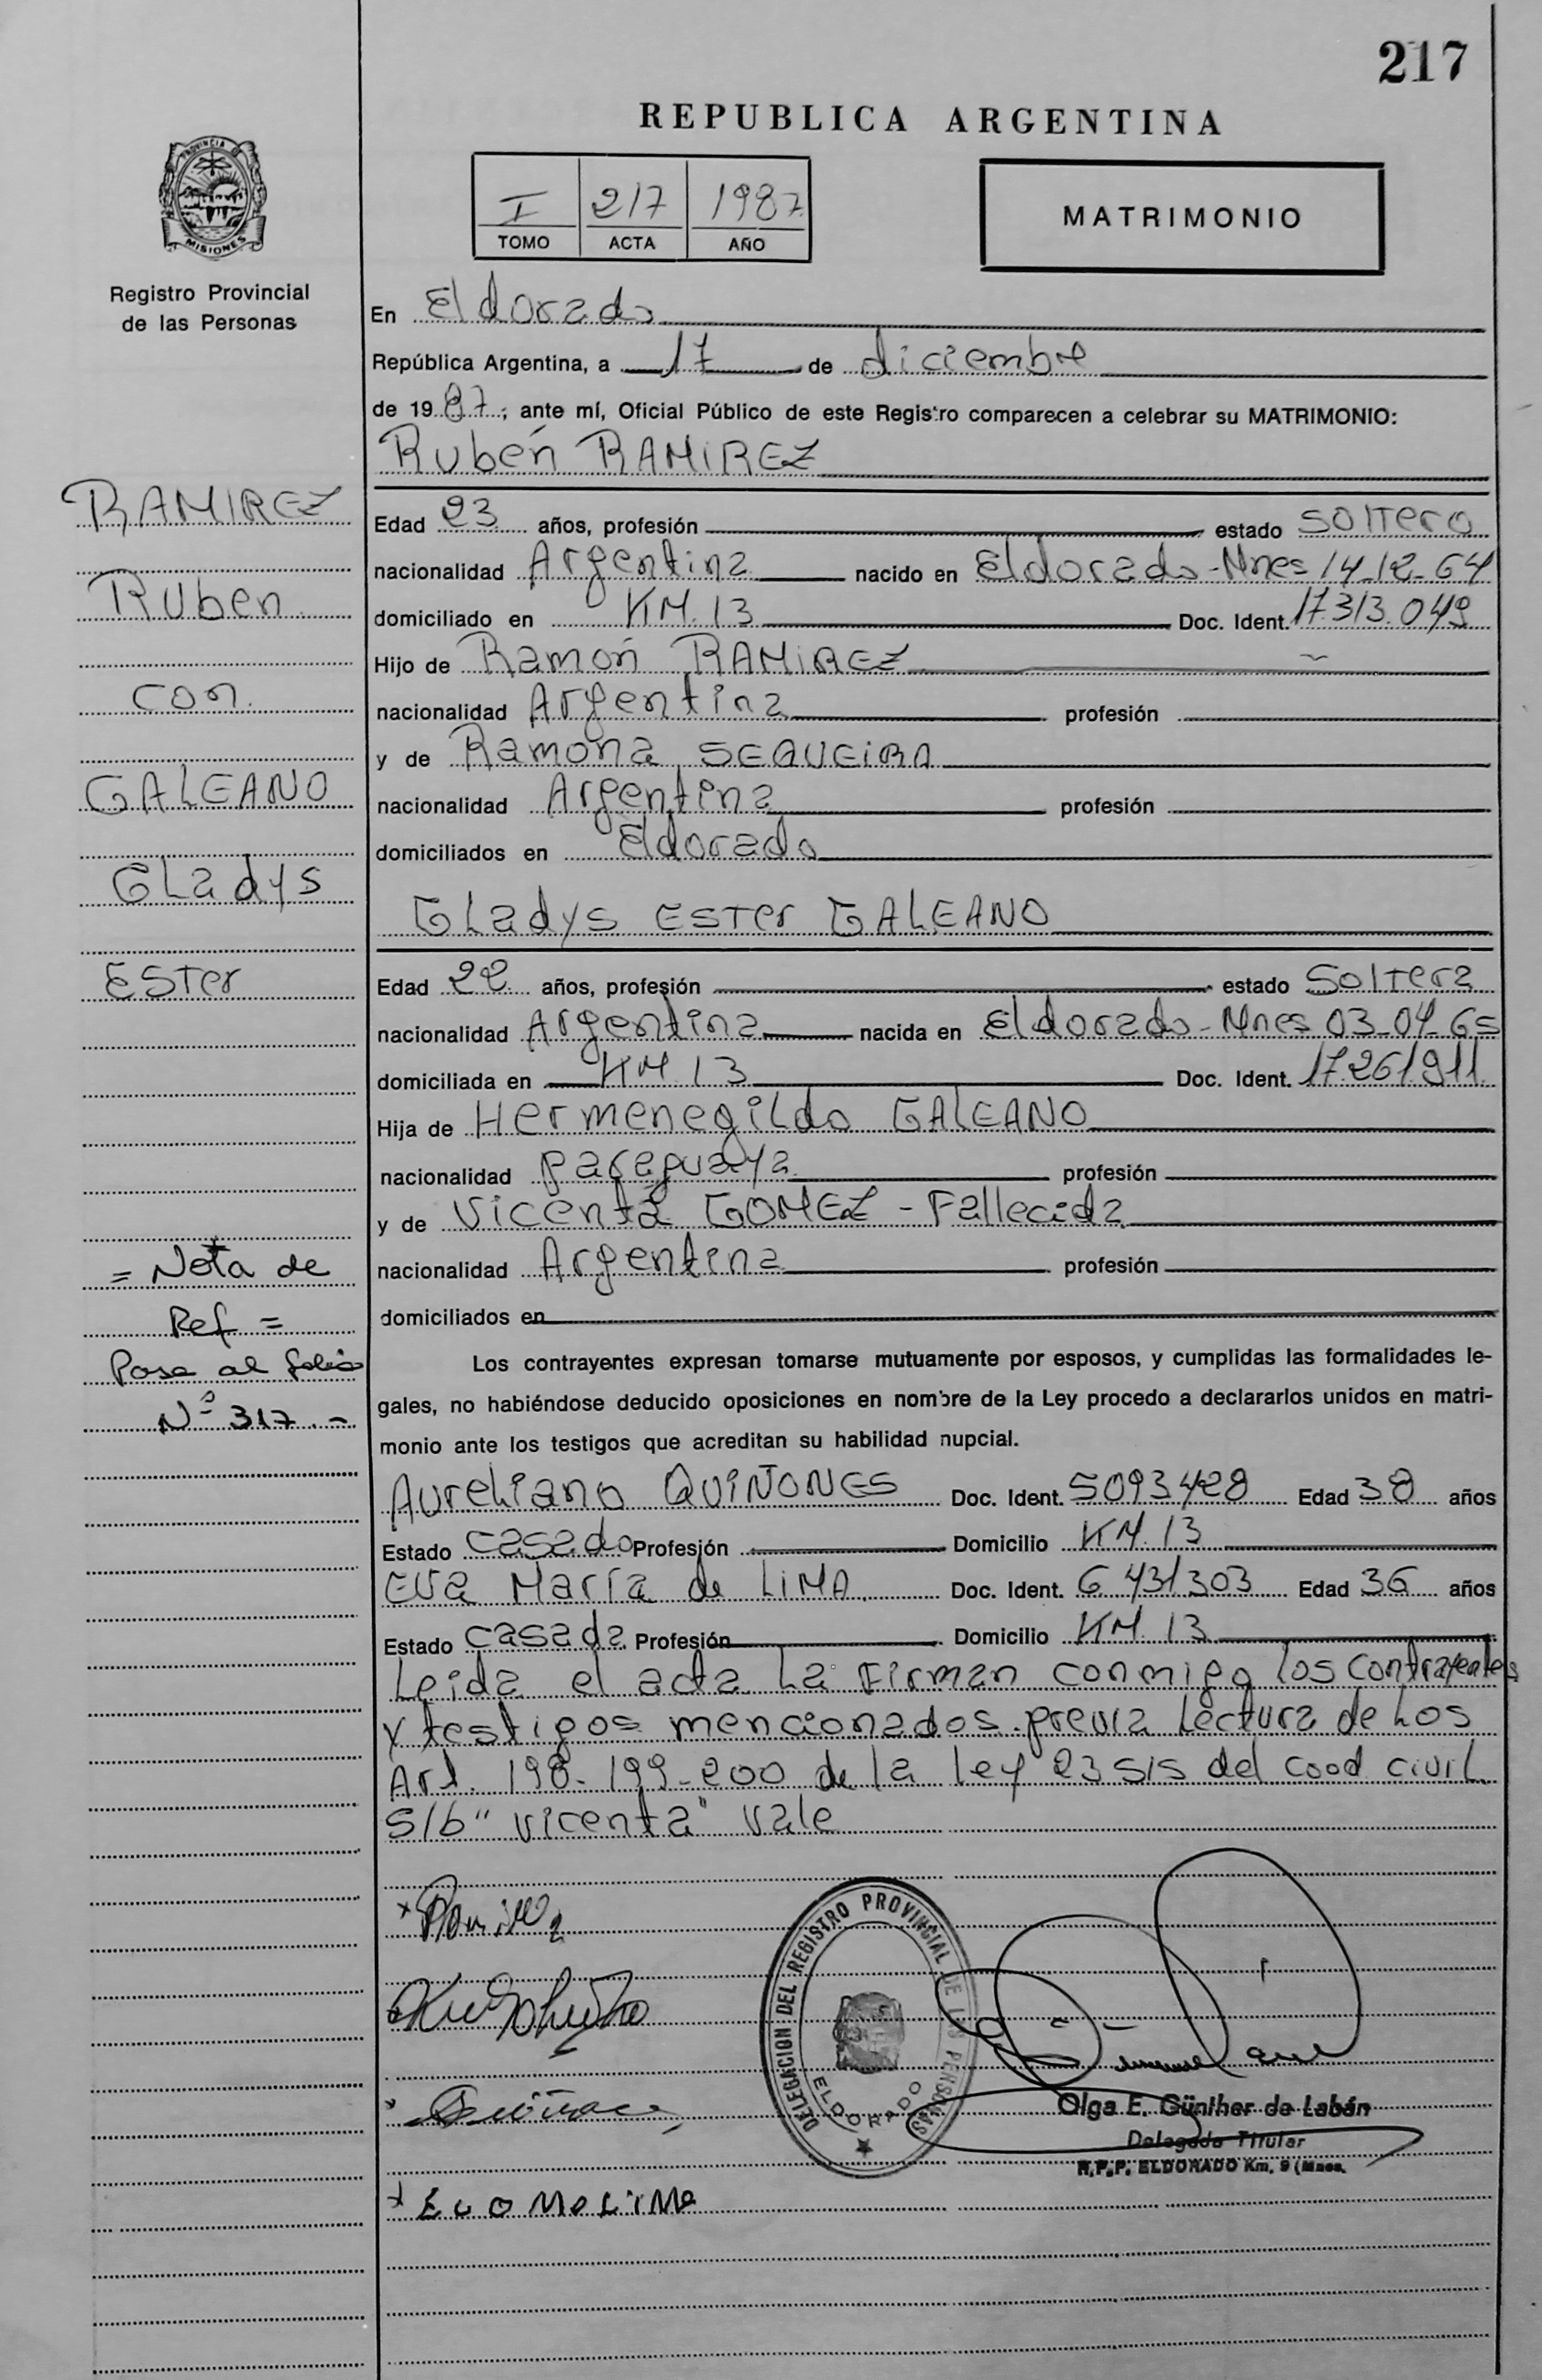 217
REPUBLICA ARGENTINA
PROVINCIA DE
MISIONES
Registro Provincial
de las Personas
I 217 1987
TOMO ACTA AÑO
MATRIMONIO
En Eldorado
República Argentina, a 17 de diciembre
de 1987, ante mí, Oficial Público de este Registro comparecen a celebrar su MATRIMONIO:
Rubén RAMIREZ
Edad 23 años, profesión estado soltero
nacionalidad Argentina nacido en Eldorado-Mnes 14-12-64
domiciliado en KM. 13 Doc. Ident. 17.313.049
Hijo de Ramón RAMIREZ
nacionalidad Argentina profesión
y de Ramona SEQUEIRA
nacionalidad Argentina profesión
domiciliados en Eldorado
Gladys Ester GALEANO
Edad 22 años, profesión estado Soltera
nacionalidad Argentina nacida en Eldorado-Mnes 03-04-65
domiciliada en KM. 13 Doc. Ident. 17.261.911
Hija de Hermenegildo GALEANO
nacionalidad paraguaya profesión
y de Vicenta GOMEZ - Fallecida
nacionalidad Argentina profesión
domiciliados en
Los contrayentes expresan tomarse mutuamente por esposos, y cumplidas las formalidades le-
gales, no habiéndose deducido oposiciones en nombre de la Ley procedo a declararlos unidos en matri-
monio ante los testigos que acreditan su habilidad nupcial.
Aureliano QUIÑONES Doc. Ident. 5093428 Edad 38 años
Estado casado Profesión Domicilio KM. 13
Eva María de LIMA Doc. Ident. 6.431.303 Edad 36 años
Estado casada Profesión Domicilio KM. 13
Leida el acta la Firman conmigo los contrayentes
y testigos mencionados previa lectura de los
Art. 198-199-200 de la ley 23515 del cood civil
S/b "vicenta" vale
RAMIREZ
Ruben
con
GALEANO
Gladys
Ester
= Nota de
Ref =
Pase al folio
Nº 317.-
DELEGACION DEL REGISTRO PROVINCIAL DE LAS PERSONAS
ELDORADO
Olga E. Günther de Labán
Delegada Titular
R.P.P. ELDORADO Km. 9 (Mnes.